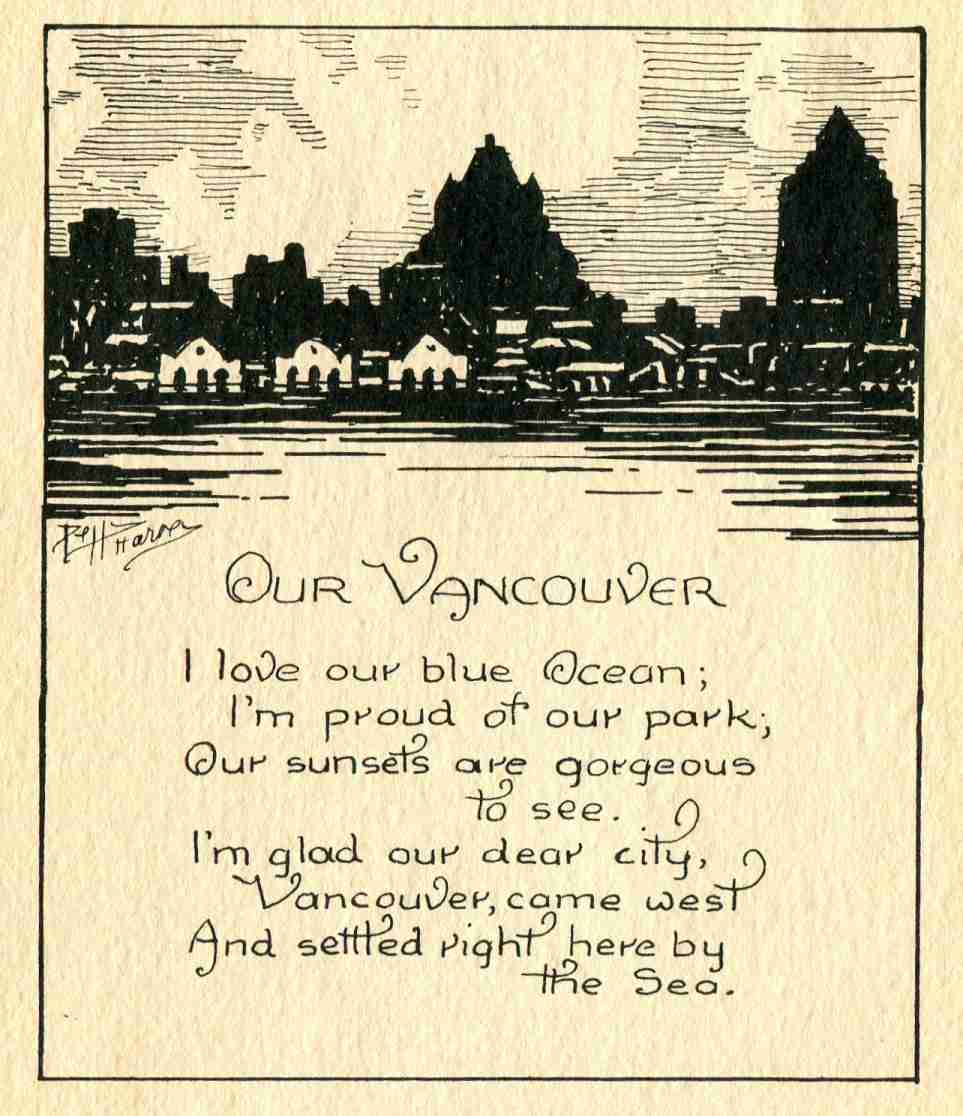 OUR VANCOUVER
I love our blue Ocean;
I'm proud of our park;
Our sunsets are gorgeous
to see.
I'm glad our dear city,
Vancouver, came west
And settled right here by
the Sea.